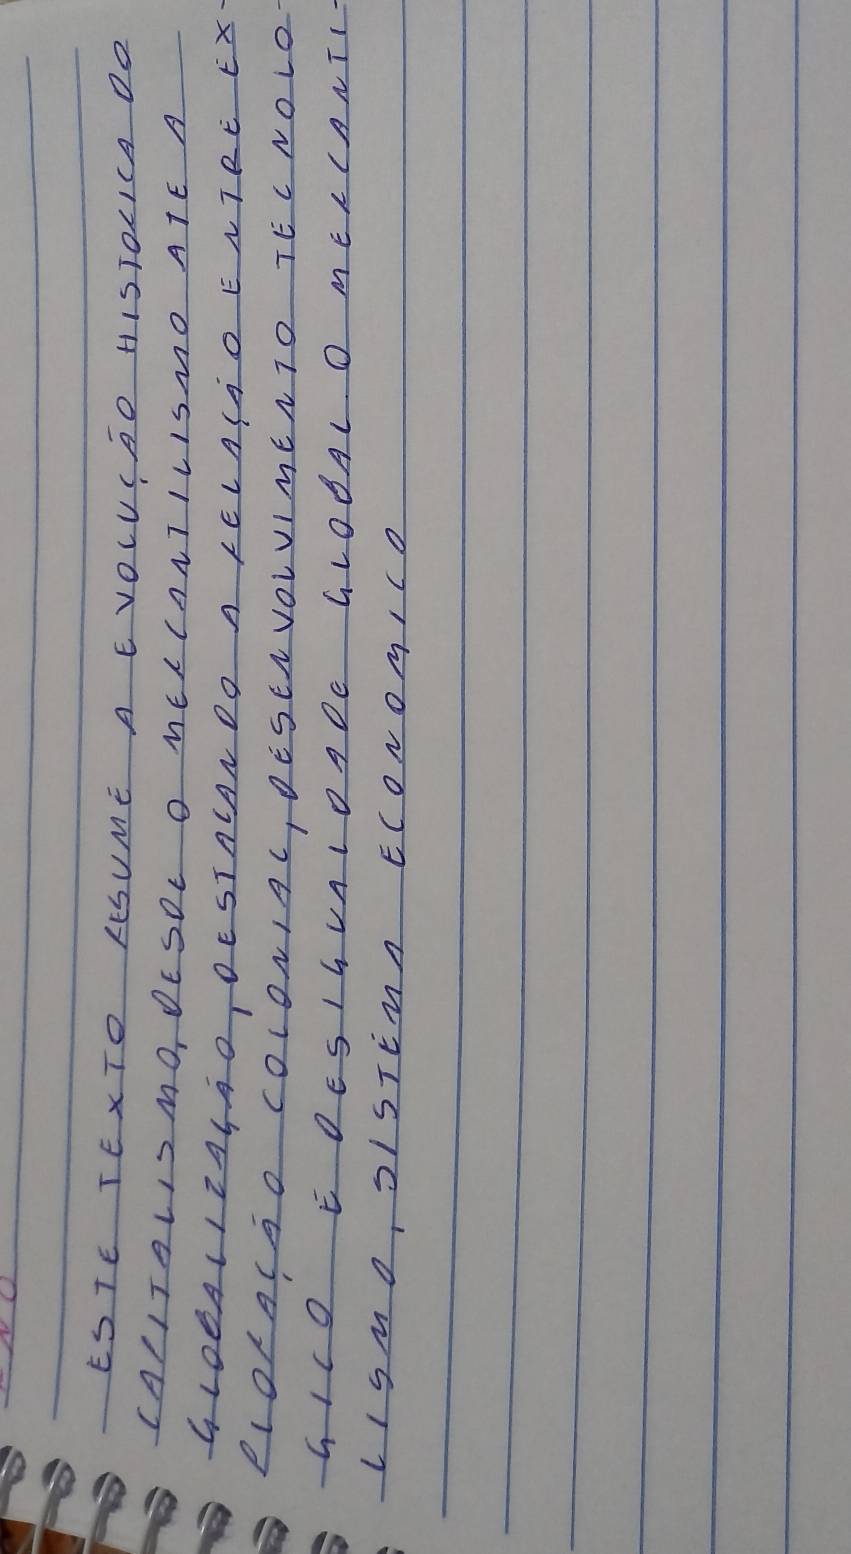 ESTE TEXTO RESUME A EVOLUÇÃO HISTORICA DO
CAPITALISMO, DESDE O MERCANTILISMO ATE A
GLOBALIZAÇÃO, DESTACANDO A RELAÇÃO ENTRE EX-
PLORAÇÃO COLONIAL, DESENVOLVIMENTO TECNOLO-
GICO E DESIGUALDADE GLOBAL O MERCANTI-
LISMO, SISTEMA ECONOMICO